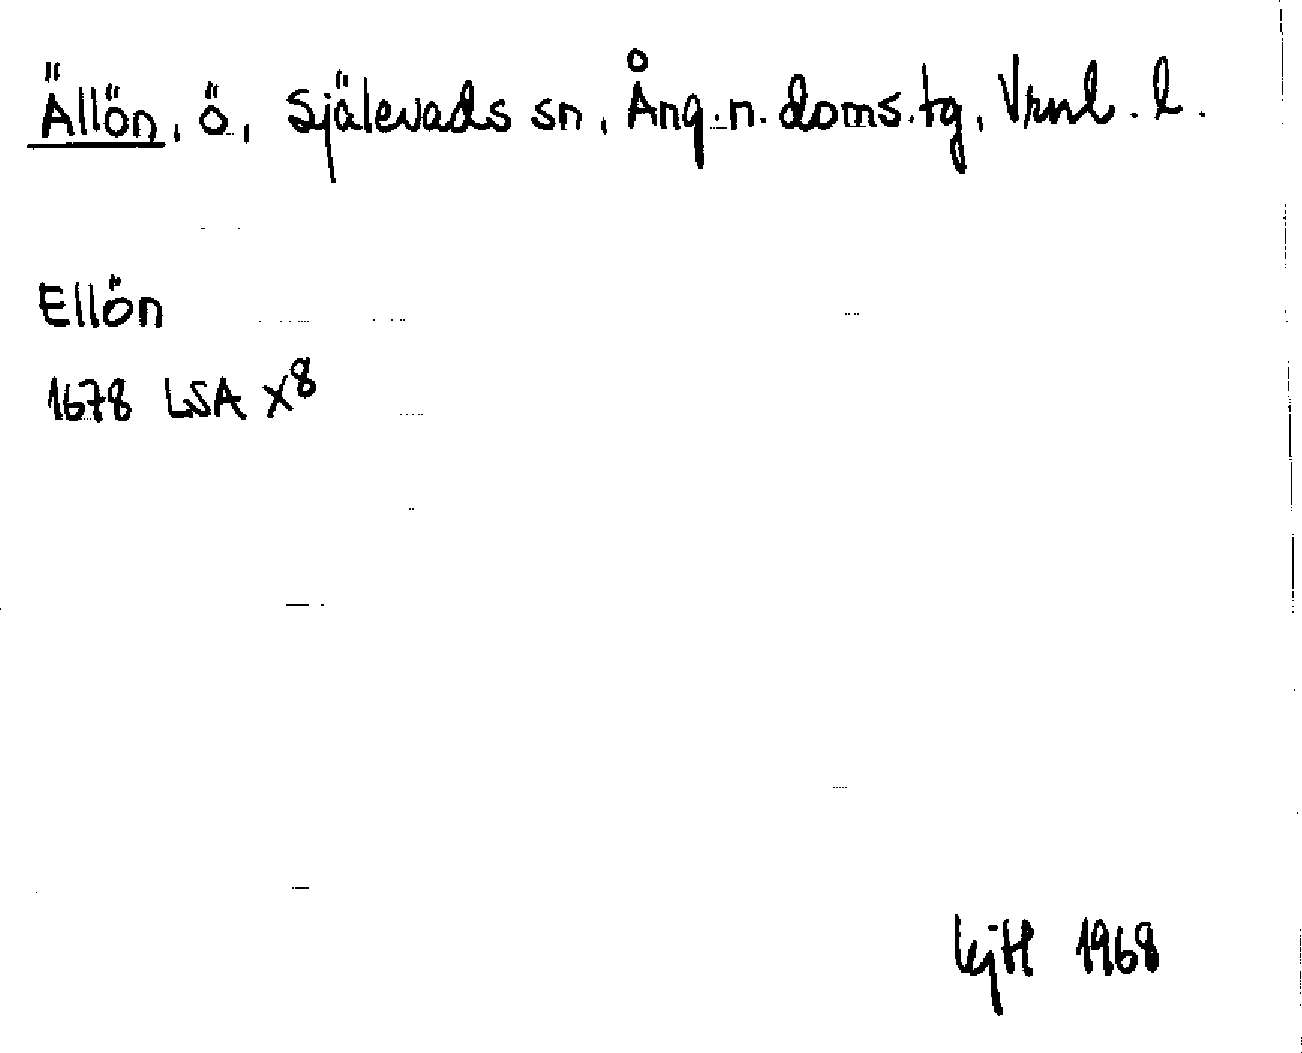 Ällön, ö, Själevads sn, Ång.n. doms.tg, Vrnl. l.
Ellön
1678 LSA X8
1968